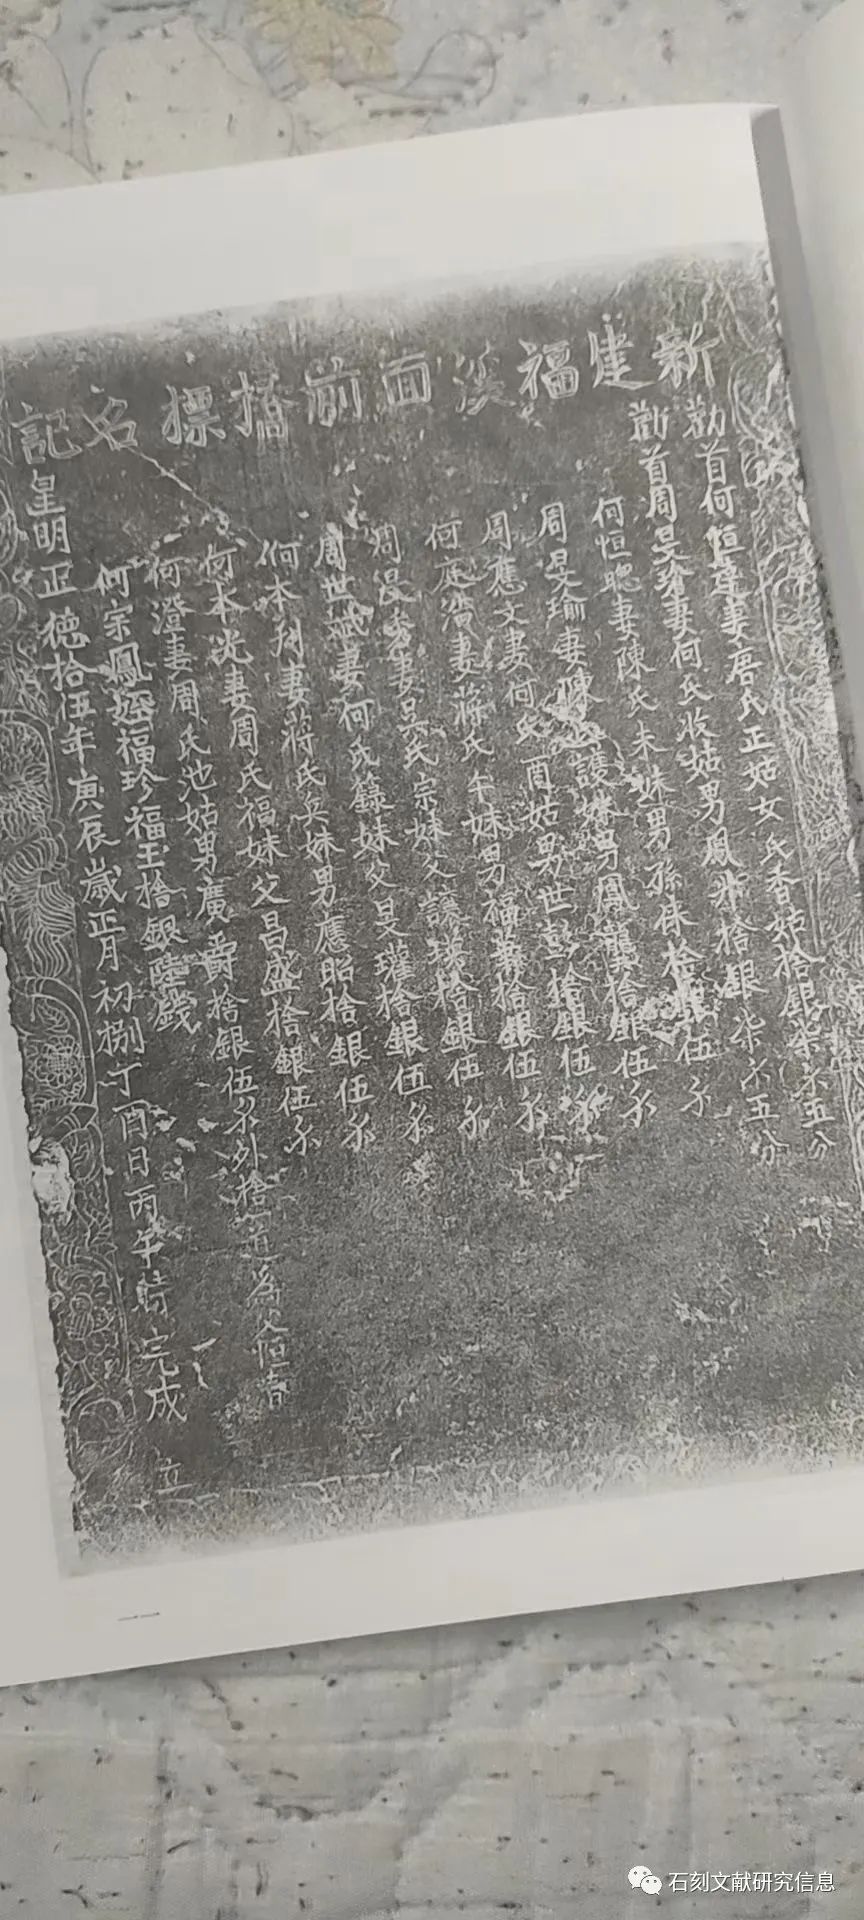 新建福溪面前橋標名記
勸首何恒達妻唐氏正姑女氏香姑捨銀柒分五分
勸首周旻瑜妻何氏收姑男鳳舛捨銀柒分五分
何恒聰妻陳氏未妹男孫保捨銀伍分
周旻瑜妻陳護妹男鳳龔捨銀伍分
周應文妻何氏酉姑男世彭捨銀伍分
何庭濱妻蔣氏年妹男福壽捨銀伍分
周旻秀妻吴氏宗妹父讓瑛捨銀伍分
周世盛妻何氏籙妹父旻瓘捨銀伍分
何本翔妻蔣氏奐妹男應昭捨銀伍分
何本光妻周氏福妹父昌盛捨銀伍分
何澄妻周氏池姑男廣爵捨銀伍分外捨為父恒音
何宗鳳姪福珍福玉捨銀陸錢
皇明正德拾伍年庚辰歲正月初捌丁酉日丙午時完成 立
一一
石刻文献研究信息